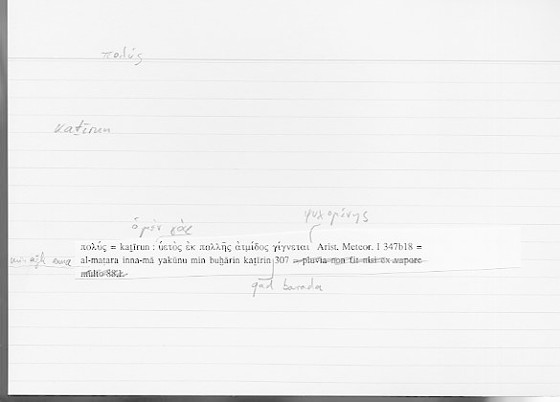 πολύς
kaṯīrun
ὁ μὲν γὰρ ψυχομένης
πολύς = kaṯīrun : ὑετὸς ἐκ πολλῆς ἀτμίδος γίγνεται Arist. Meteor. I 347b18 =
al-maṭara inna-mā yakūnu min buḫārin kaṯīrin 307 = pluvia non fit nisi ex vapore
multo
qad barada